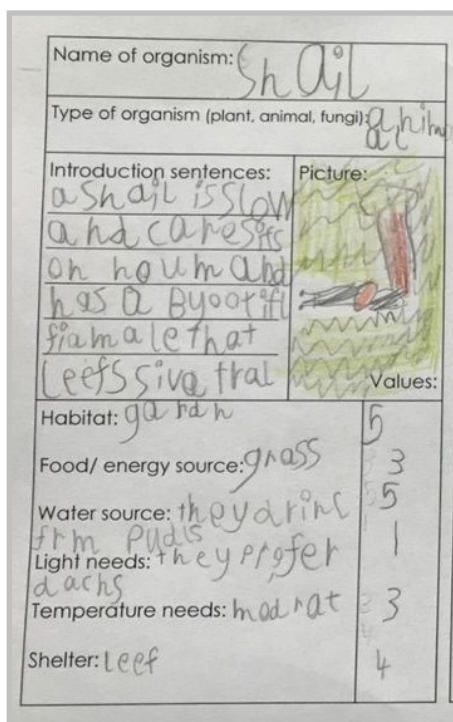 Name of organism: Snail
Type of organism (plant, animal, fungi): animal
Introduction sentences:
a snail is slow
and cares its
on houm and
has a Byootifl
fiamale that
leefs siva tral
Picture:
Values:
Habitat: gardn 5
Food/ energy source: grass 3
Water source: they drinc 5
frm Pudls
Light needs: they prefer 1
dachs
Temperature needs: modrat 3
Shelter: Leef 4